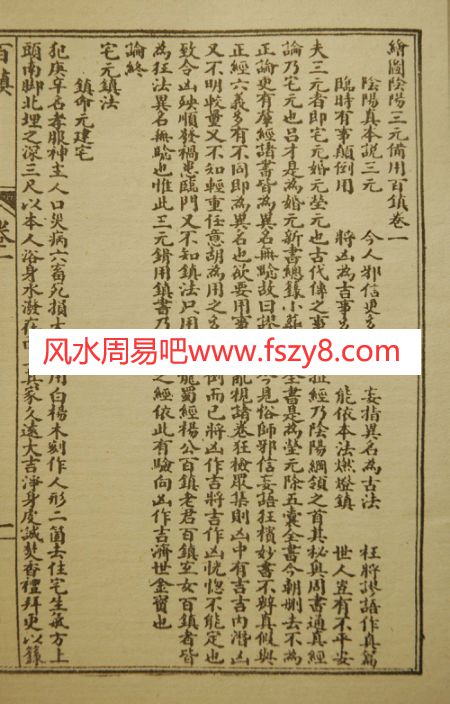 繪圖陰陽三元備用百鎮卷一
陰陽真本說三元 今人邪信更多 妄指異名為古法 枉將謬語作真篇
臨時有事顛倒用 將凶為吉事 能依本法燃燈鎮 世人豈有不平安
夫三元者即宅元婚元塋元也古代傳之 經乃陰陽綱領之首其秘與周書通真經
論乃宅元也呂才是為婚元新書總錄小 全書是為塋元除五囊全書今朝刪去不為
正論更有羣經諸書皆為異名無驗故曰 今見俗師邪信妄語狂欺妙書不辨真假與
正經六義多有不同即為異名也欲要用事 亂視諸卷狂檢眾集則凶中有吉吉內潛凶
又不明較量又不知輕重任意胡為用之 倒而已將凶作吉將吉作凶恍惚不能定也
致令凶殃順發禍 臨門又不知鎮法只用 龍蜀經楊公百鎮老君百鎮玄女百鎮者皆
為狂法異名無驗也惟此三元錄用鎮書乃 之經依此有驗向凶作吉濟世金寶也
論終
宅元鎮法
鎮命元建宅
犯庚辛名孝服神主人口災病六畜死損 用白楊木刻作人形二箇去住宅生氣方上
頭南脚北埋之深三尺以本人浴身水潑在 其家久遠大吉淨身虔誠焚香禮拜更以錄
百鎮 卷一 一
风水周易吧www.fszy8.com